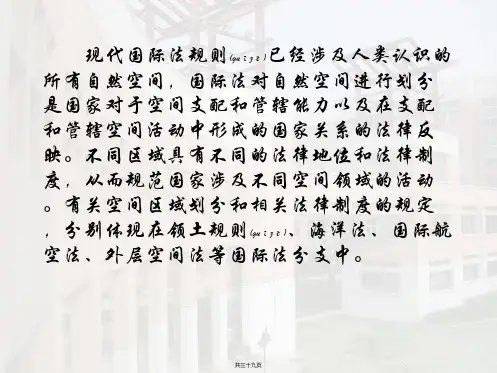 现代国际法规则(guīzé)已经涉及人类认识的
所有自然空间，国际法对自然空间进行划分
是国家对于空间支配和管辖能力以及在支配
和管辖空间活动中形成的国家关系的法律反
映。不同区域具有不同的法律地位和法律制
度，从而规范国家涉及不同空间领域的活动
。有关空间区域划分和相关法律制度的规定
，分别体现在领土规则(guīzé)、海洋法、国际航
空法、外层空间法等国际法分支中。
共三十九页